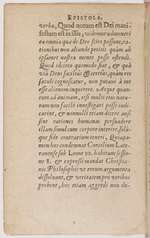 EPISTOLA.
verba, Quod notum est Dei mani-
festum est in illis,
ea omnia quæ de Deo sciri possunt, ra-
tionibus non aliunde petitis quam ab
ipsamet nostra mente posse ostendi.
Quod idcirco quomodo fiat, & quâ
viâ Deus facilius & certius, quam res
sæculi cognoscatur, non putavi à me
esse alienum inquirere. Atque quan-
tum ad animam, etsi multi ejus natu-
ram non facile investigari posse judi-
carint, & nonnulli etiam dicere ausi
sint rationes humanas persuadere
illam simul cum corpore interire, solâ-
que fide contrarium teneri, quia
tamen hos condemnat Concilium Late-
ranense sub Leone 10. habitum sessio-
ne 8. & expresse mandat Christia-
nis Philosophis ut eorum argumenta
dissolvant, & veritatem pro viribus
probent, hoc etiam aggredi non du-